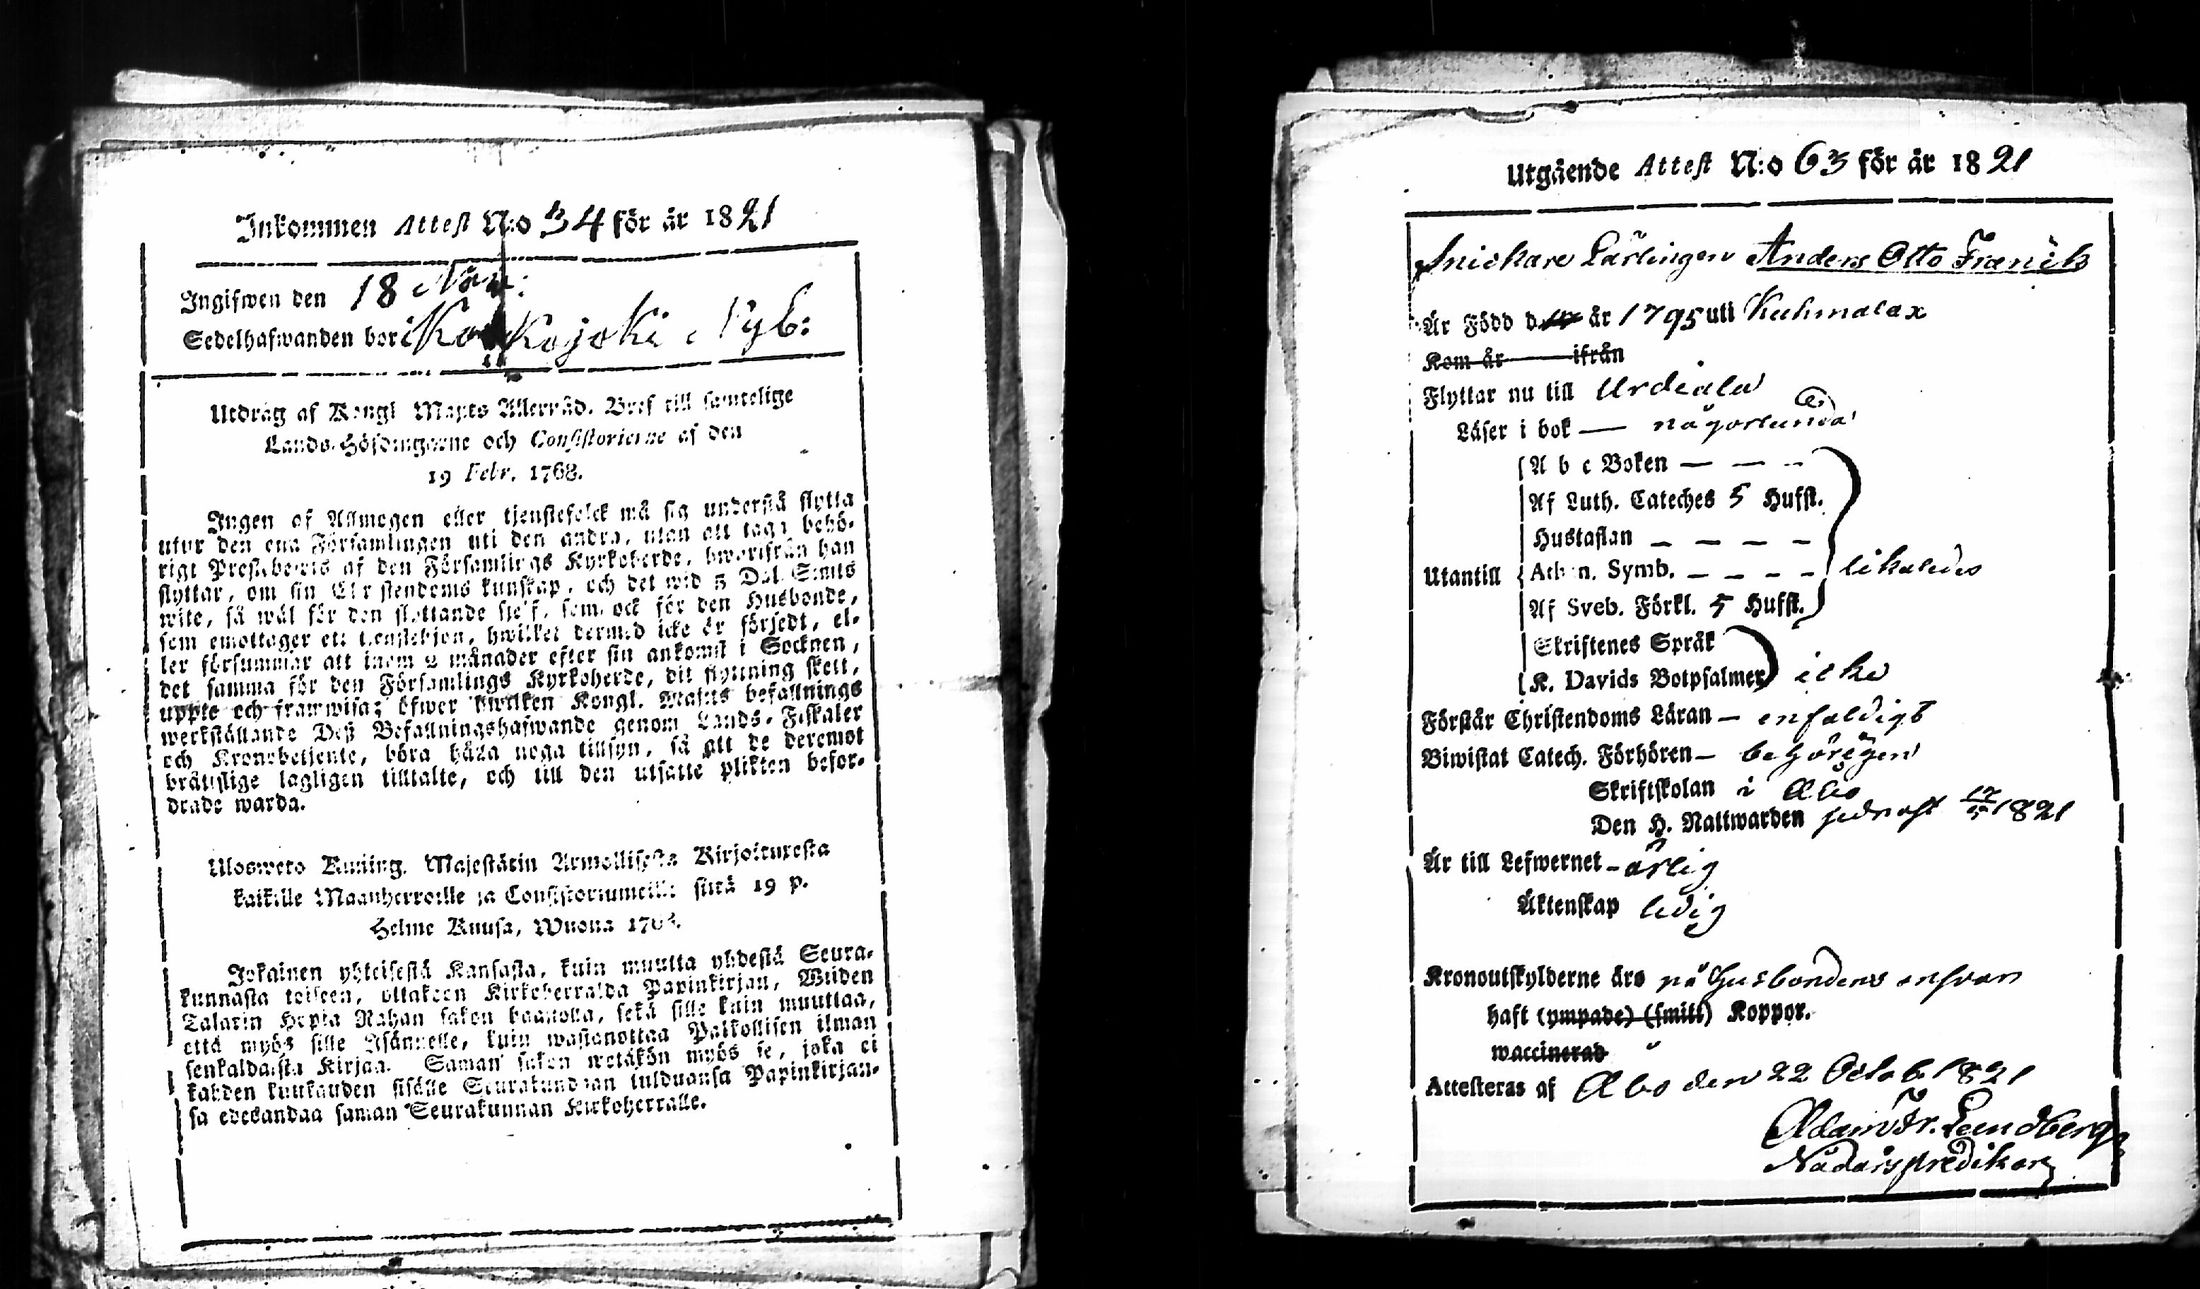 Inkommen Attest N:o 34 för är 1821
Ingifwen den 18 Nov:
Sedelhafwanden bor i Nyb:
Utdrag af Kongl. Maj:ts Allernåd. Bref till samtelige
Lands-Höfdingarne och Consistorierne af den
19 Febr. 1768.
Ingen af Allmogen eller tjenstefolck må sig understå flytta
utur den ena Församlingen uti den andra, utan att taga behö-
rigt Prestabewis af den Församlings Kyrkoherde, hwarifrån han
flyttar, om sin Christendoms kunskap, och det wid 5 Dal. S:mts
wite, så wäl för den flyttande sjelf, som ock för den Husbonde,
som emottager ett tjenstehjon, hwilket dermed icke är försedt, el-
ler försummar att inom 2 månader efter sin ankomst i Socknen,
det samma för den Församlings Kyrkoherde, dit flyttning skett,
uppte och framwisa; öfwer hwilken Kongl. Maj:ts befallnings
werkställande Deß Befallningshafwande genom Lands-Fiskaler
och Kronobetjente, böra hålla noga tillsyn, så att de deremot
brättslige lagligen tilltalte, och till den utsatte plikten befor-
drade warda.
Ulosweto Kuning. Majestätin Armollisesta Kirjoituxesta
kaikille Maanherroille ja Consistoriumeille siitä 19 p.
Helme Kuusa, Wuona 1768.
Jokainen yhteisestä Kansasta, kuin muutta yhdestä Seura-
kunnasta toiseen, ottakoon Kirkoherralda Papinkirjan, Wiiden
Talarin Hopia Rahan sakon haastolla, sekä sille kuin muuttaa,
että myös sille Isännelle, kuin wastanottaa Palkollisen ilman
senkaldaista Kirjaa. Saman sakon wetäkön myös se, joka ei
kahden kuukauden sisälle Seurakundaan tulduansa Papinkirjan-
sa edesandaa saman Seurakunnan Kirkoherralle.
Utgående Attest N:o 63 för år 1821
Snickare Lärlingen Anders Otto Franck
Är Född d. år 1795 uti Kuhmalax
Kom år ifrån
Flyttar nu till Urdiala
Läser i bok — någorlunda
A b c Boken — — -
Af Luth. Cateches 5 Hufst.
Hustaflan — — — —
Utantill Athan. Symb. — — — — likaledes
Af Sveb. Förkl. 5 Hufst.
Skriftenes Språk
K. Davids Botpsalmer icke
Förstår Christendoms Läran — enfaldigt
Biwistat Catech. Förhören — behörigen
Skriftskolan i Åbo
Den H. Nattwarden sednast 17/5 1821
Är till Lefwernet - ärlig
Äktenskap ledig
Kronoutskylderne äro på Husbondens answar
haft (ympade) (smitt) Koppor.
waccinerad
Attesteras af Åbo den 22 Octob. 1821
Adam Fr. Lundberg
Nådårspredikant